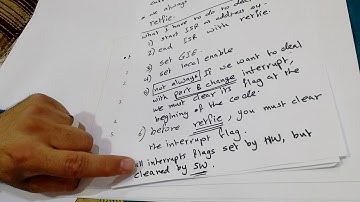 • we always
retfie.
what I have to do to deal
1) start ISR at address 04
2) end ISR with retfie.
3) set GIE.
4) set local enable
5) (not always) If we want to deal
with port B change interrupt,
we must clear its flag at the
begining of the code.
6) before retfie, you must clear
the interrupt flag.
all interrupt flags set by HW, but
cleared by SW.